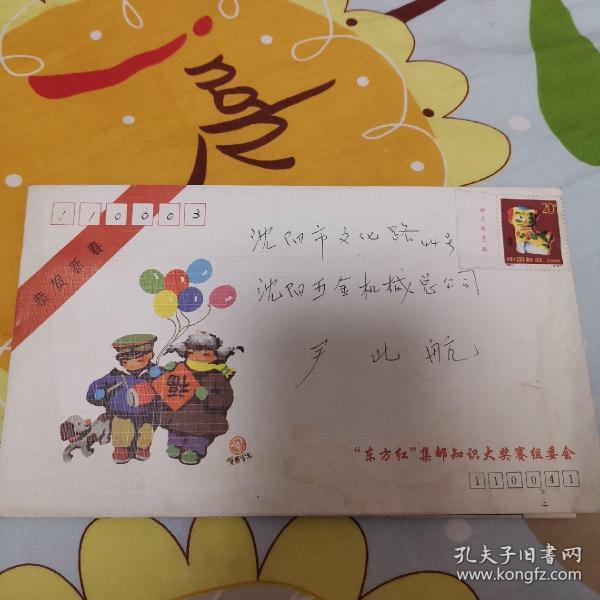 110003
恭贺新春
沈阳市文化路44号
沈阳五金机械总公司
尹此航
20分
中国邮政
福
"东方红"集邮知识大奖赛组委会
110041
孔夫子旧书网
www.kongfz.com